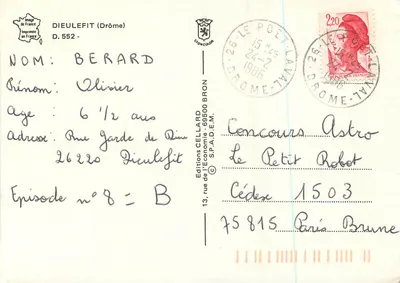 Image de France
Imprimé en France
DIEULEFIT (Drôme)
D. 552 -
NOM: BERARD
Prénom: Olivier
Age : 6 1/2 ans
Adresse: Rue Garde de Dieu
26220 Dieulefit
Episode n°8 = B
Editions CELLARD
13, rue de l'Economie - 69500 BRON
© S.P.A.D.E.M.
26-LE POET-LAVAL
24-2
1986
DROME-
2,20
26-LE POET-LAVAL
1986
DROME-
Concours Astro
Le Petit Robot
Cédex 1503
75815 Paris Brune